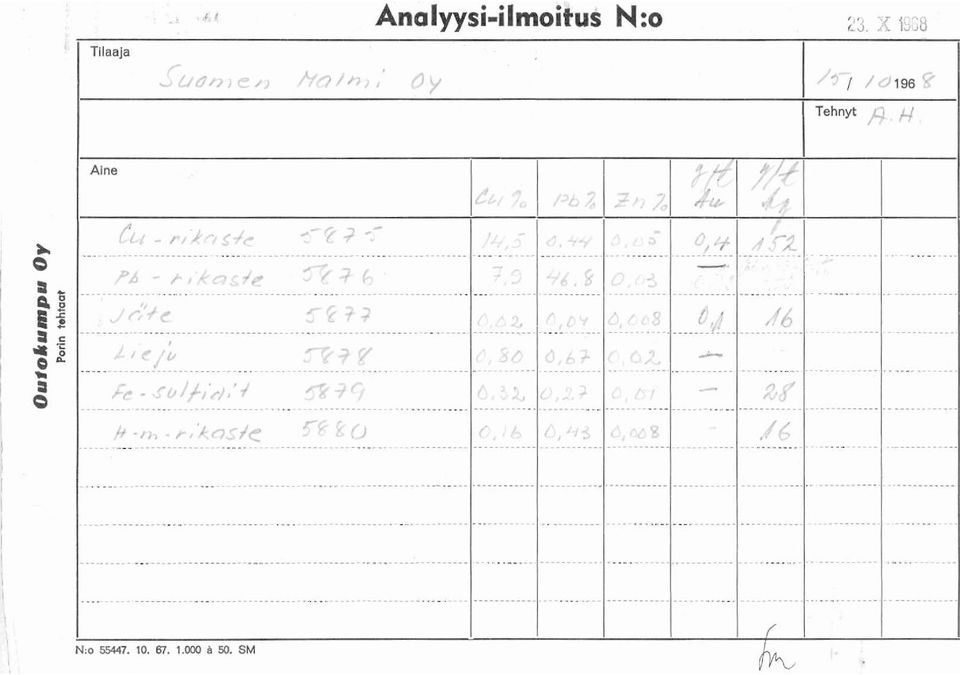 Analyysi-ilmoitus N:o
23. X 1968
Tilaaja
Suomen Malmi Oy
15/ 10 196 8
Tehnyt A.H.
Aine Cu % Pb % Zn % g/t Au g/t Ag
Cu-rikaste 5875 14,5 0,44 0,05 0,4 152
Pb-rikaste 5876 7,9 46,8 0,03 —
Jäte 5877 0,02 0,04 0,008 0,1 16
Lieju 5878 0,80 0,67 0,02 —
Fe-sulfidit 5879 0,32 0,27 0,01 — 28
H-m-rikaste 5880 0,16 0,43 0,008 - 16
Outokumpu Oy
Porin tehtaat
N:o 55447. 10. 67. 1.000 à 50. SM